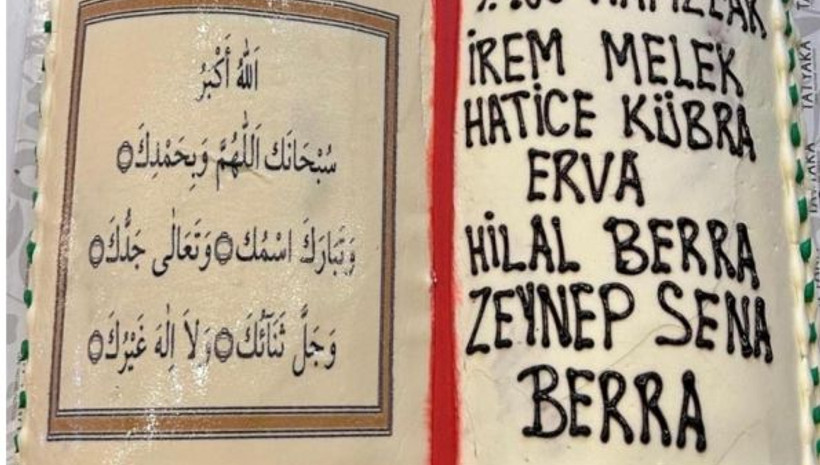 اَللّٰهُ أَكْبَرُ
سُبْحَانَكَ اَللّٰهُمَّ وَبِحَمْدِكَ۝
وَتَبَارَكَ اسْمُكَ۝وَتَعَالٰى جَدُّكَ۝
وَجَلَّ ثَنَآئُكَ۝وَلَا اِلٰهَ غَيْرُكَ۝
İREM MELEK
HATİCE KÜBRA
ERVA
HİLAL BERRA
ZEYNEP SENA
BERRA
TATYAKA